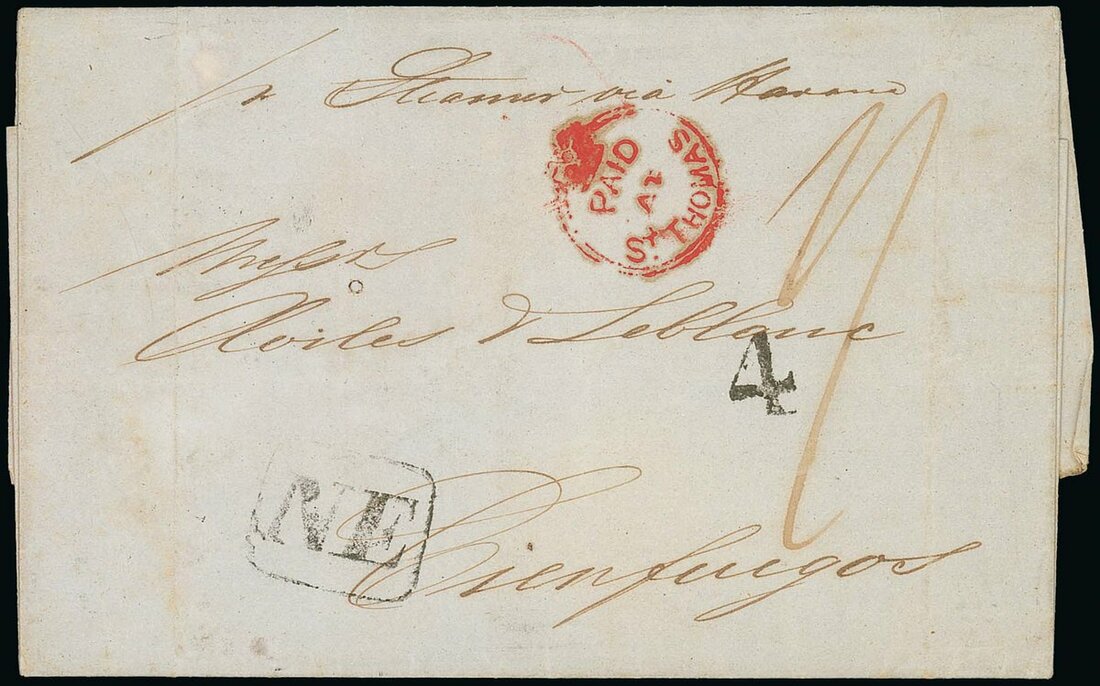 pr Steamer via Havana
PAID
AT
St THOMAS
Messrs
Aviles & Leblanc
4
NE
Cienfuegos